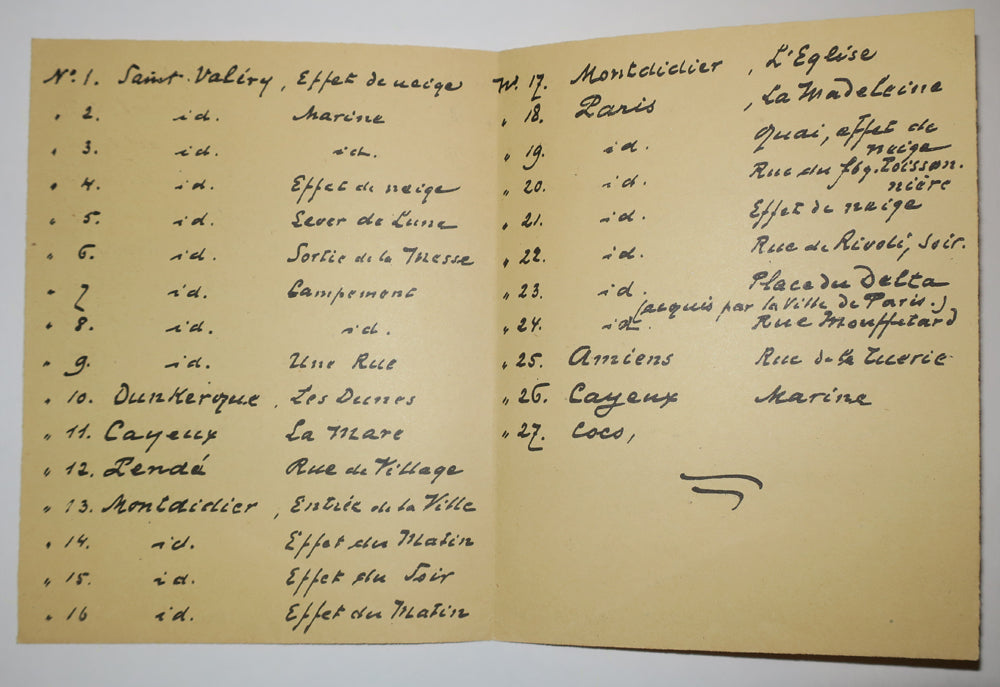 Nº 1. Saint-Valéry, Effet de neige
" 2. id. Marine
" 3. id. id.
" 4. id. Effet de neige
" 5. id. Lever de Lune
" 6. id. Sortie de la Messe
" 7 id. Campement
" 8. id. id.
" 9. id. Une Rue
" 10. Dunkerque, Les Dunes
" 11. Cayeux La Mare
" 12. Pendé Rue de Village
" 13. Montdidier, Entrée de la Ville
" 14. id. Effet du Matin
" 15. id. Effet du Soir
" 16 id. Effet du Matin
Nº 17. Montdidier, L'Eglise
" 18. Paris, La Madeleine
" 19. id. Quai, effet de
neige
" 20. id. Rue du fbg. Poisson-
nière
" 21. id. Effet de neige
" 22. id. Rue de Rivoli, soir.
" 23. id. Place du Delta
(acquis par la Ville de Paris.)
" 24. id. Rue Mouffetard
" 25. Amiens Rue de la Tuerie
" 26. Cayeux Marine
" 27. Coco,